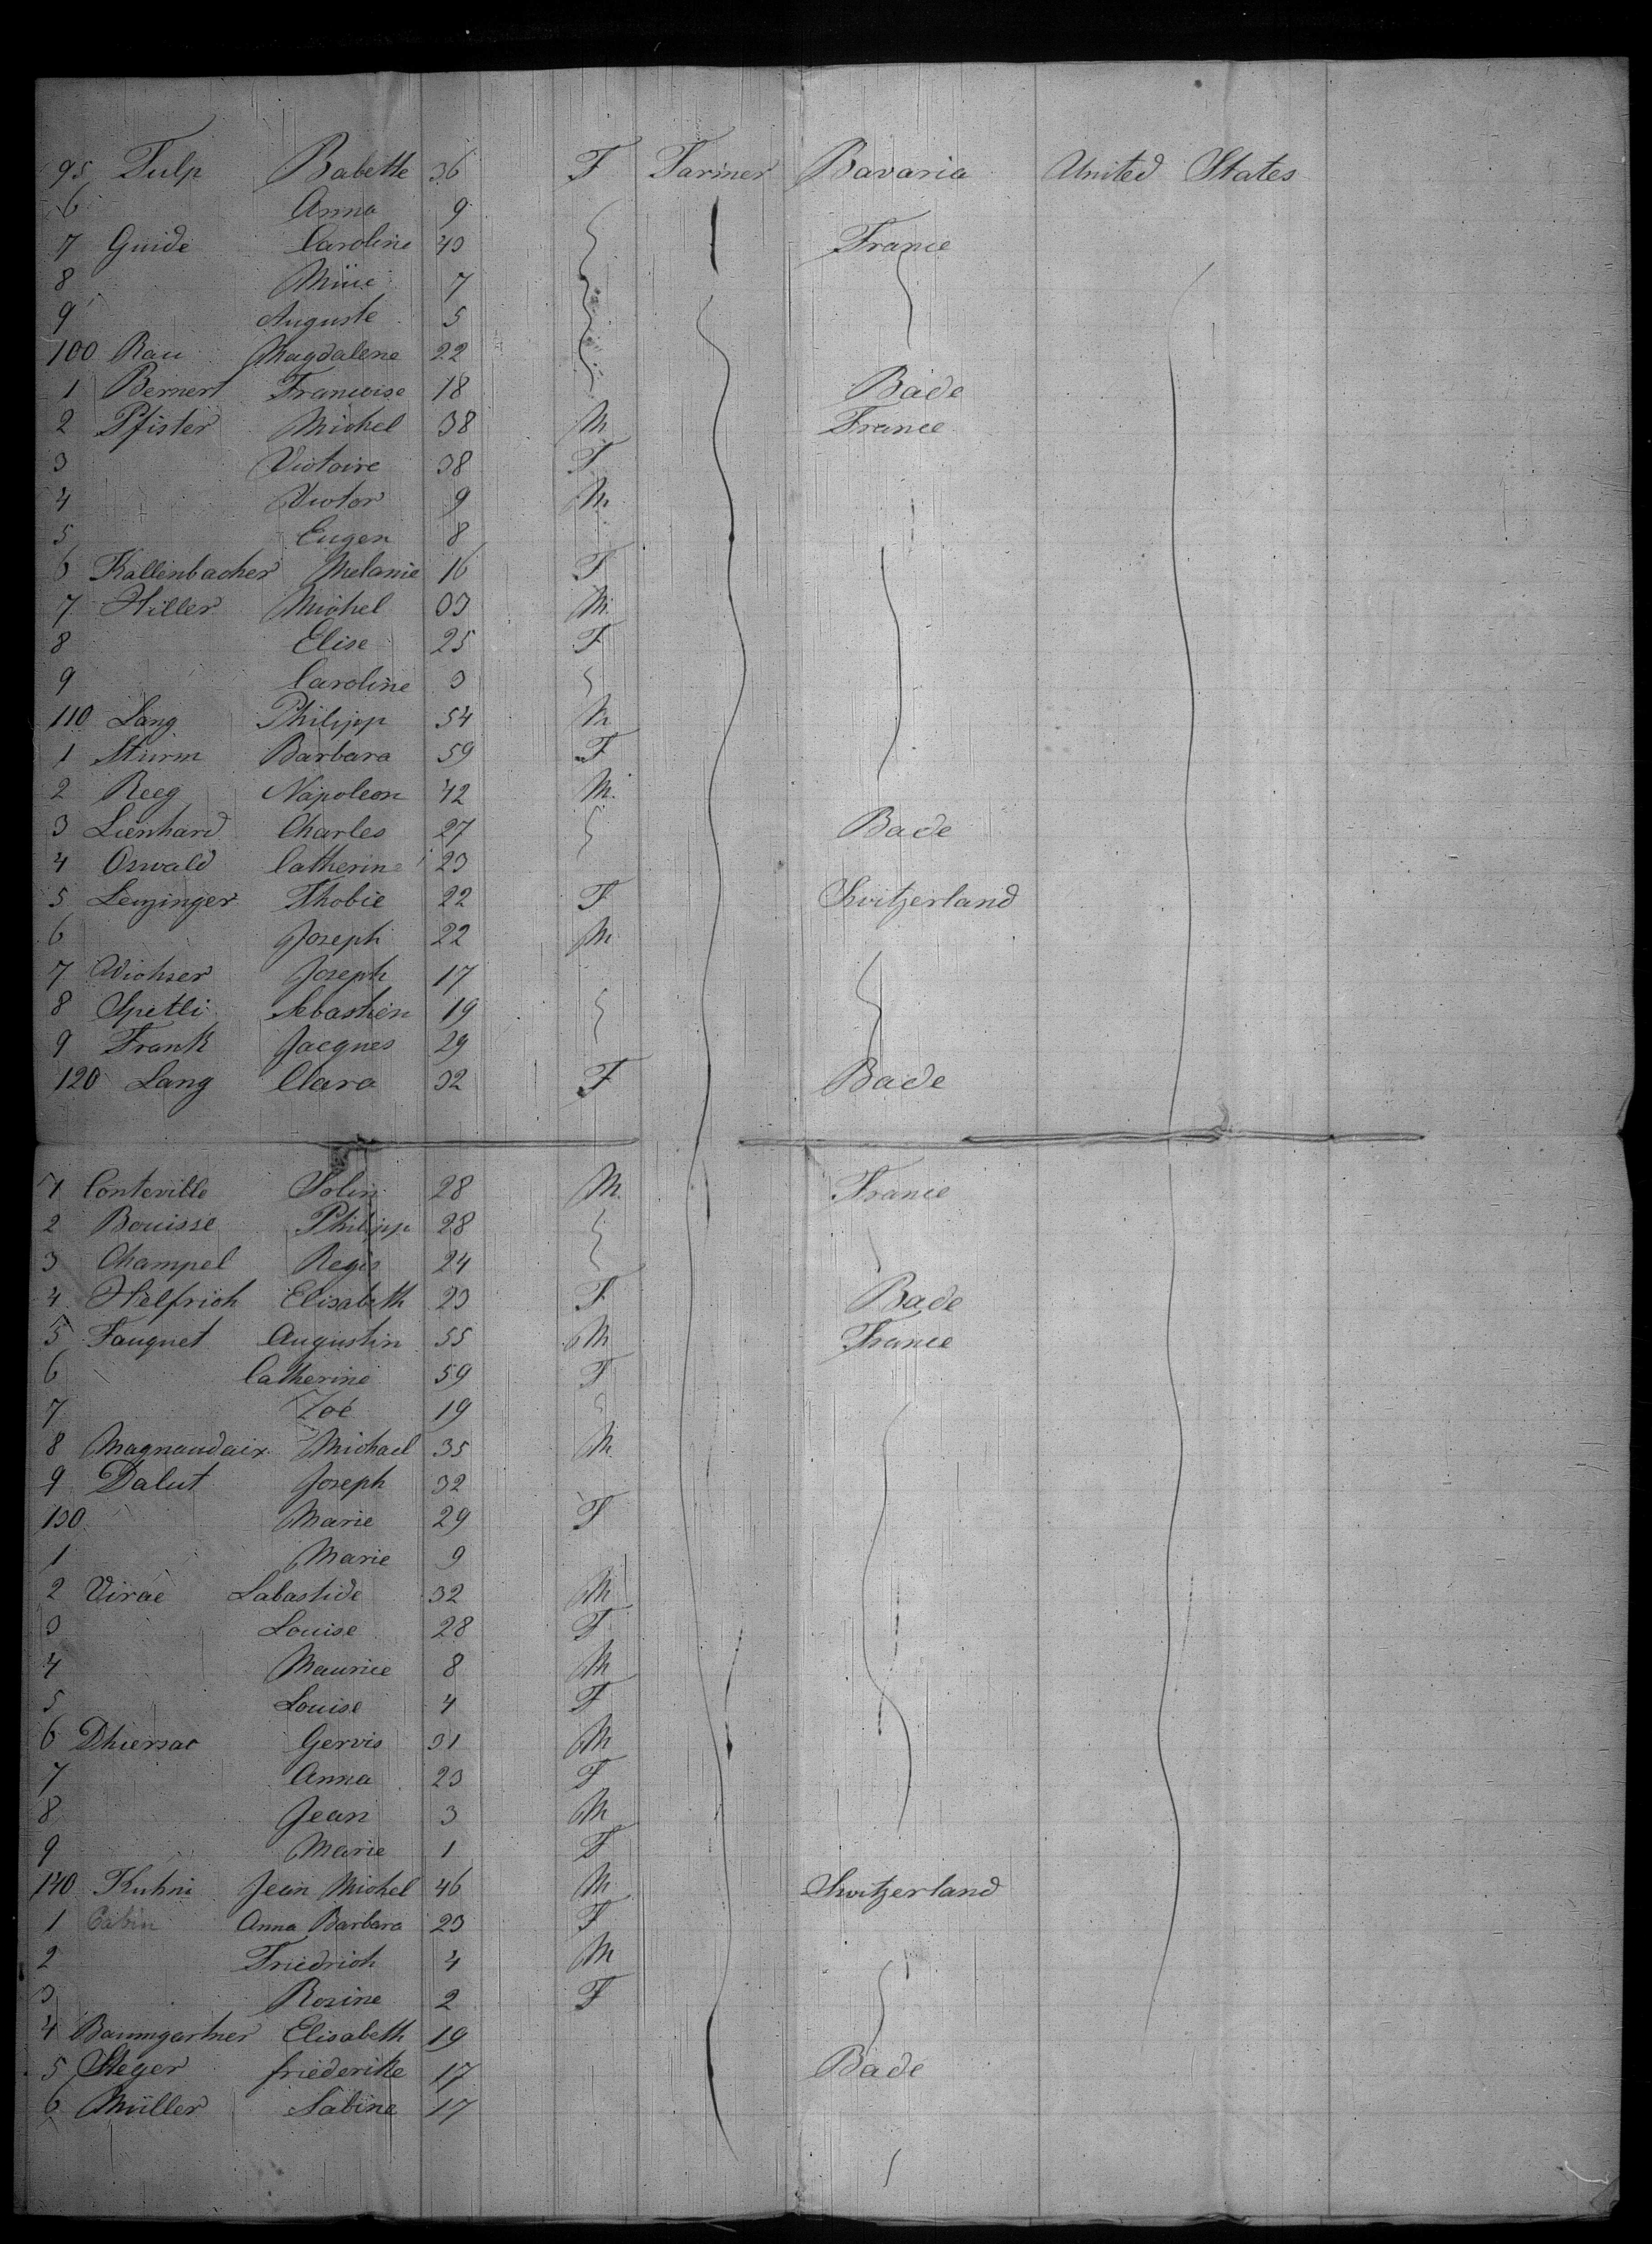 95 Tulp Babette 36 F Farmer Bavaria United States
6 Anna 9
7 Guide Caroline 43 France
8 7
9 Auguste 5
100 Rau Magdalene 22
1 Bernert Francoise 18 Bade
2 Pfister Michel 38 M France
3 Victoire 38 F
4 Victor 9 M
5 Eugen 8
6 Kallenbacher Melanie 16 F
7 Hiller Michel 33 M
8 Elise 25 F
9 Caroline 3
110 Lang Philipp 54 M
1 Sturm Barbara 59 F
2 Reeg Napoleon 42 M
3 Lienhard Charles 27 Bade
4 Oswald Catherine 23
5 Lenzinger Thobie 22 F Switzerland
6 Joseph 22 M
7 Wichser Joseph 17
8 Spetli Sebastien 19
9 Frank Jacques 29
120 Lang Clara 32 F Bade
1 Conteville Solin 28 M France
2 Bouisse Philipp 28
3 Champel Regis 24
4 Helfrich Elisabeth 23 F Bade
5 Fauquet Augustin 55 M France
6 Catherine 59 F
7 Zoé 19
8 Magnaudaix Michael 35 M
9 Dalut Joseph 32
130 Marie 29 F
1 Marie 9
2 Virae Labastide 32 M
3 Louise 28 F
4 Maurice 8 M
5 Louise 4 F
6 Dhiersac Gervis 31 M
7 Anna 23 F
8 Jean 3 M
9 Marie 1 F
140 Kuhni Jean Michel 46 M Switzerland
1 Cabin Anna Barbara 23 F
2 Friedrich 4 M
3 Rosine 2 F
4 Baumgartner Elisabeth 19
5 Steger friederike 17 Bade
6 Müller Sabine 17